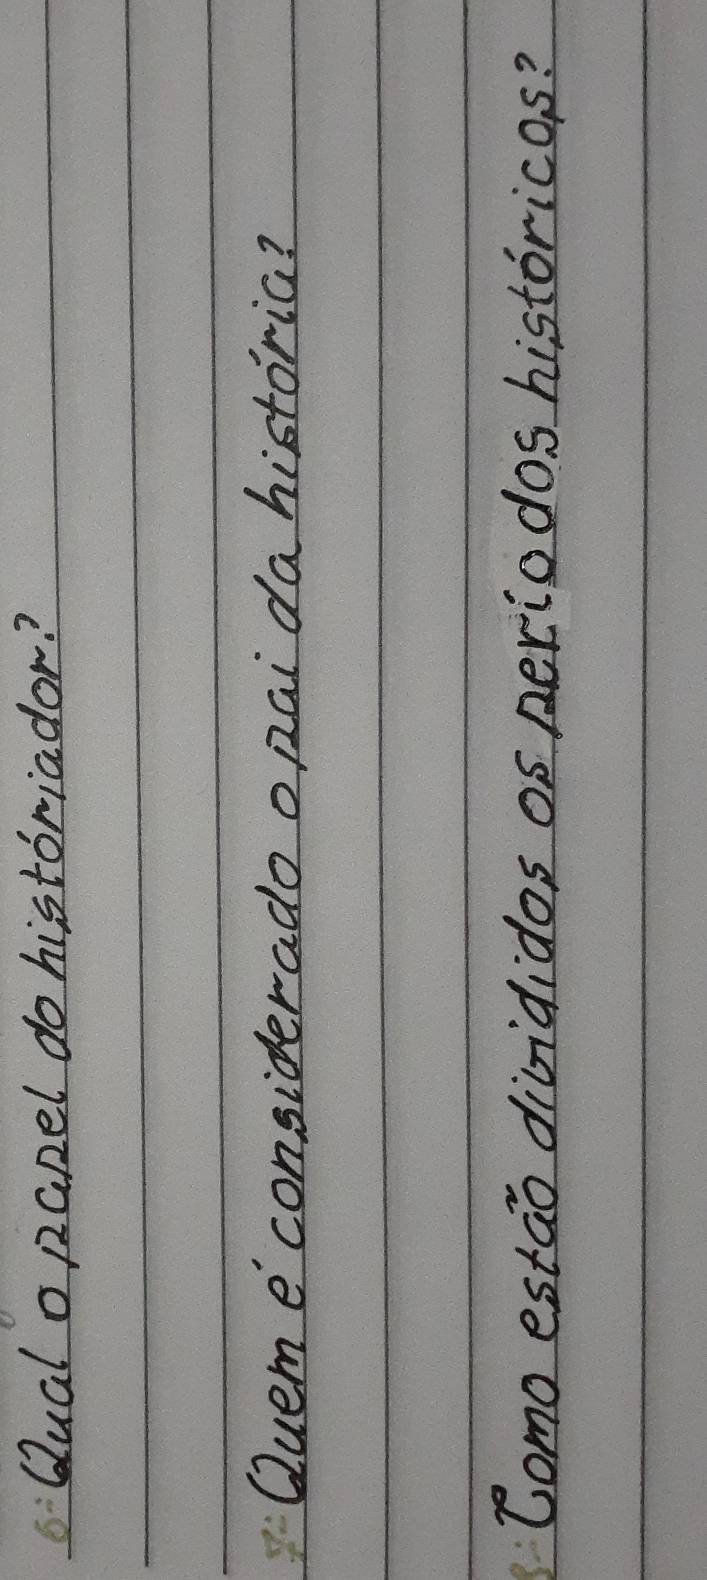 6:- Qual o papel do históriador?
7:- Quem é considerado o pai da história?
8:- Como estão divididos os períodos históricos?